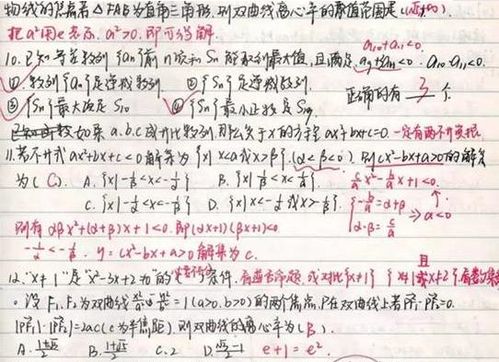 物线的焦点若△FAB为直角三角形,则双曲线离心率的取值范围是
把a²用e表示,a²>0.即可当解
a₁₀+a₁₁<0.
10.已知等差数列{an}前n项和Sn能取到最大值,且满足 a₁₀·a₁₁<0.
①数列{an}是递减数列 ②{Sn}是递减数列.
③{Sn}最大值是S₁₀ ④{Sn}最小正数是S₁₉ 正确的有 3 个
如果a.b.c成等比数列,那么关于x的方程ax²+bx+c=0.一定有两不等实根
11.若不等式ax²+bx+c<0解集为{x|x<α或x>β}.(α<β<0).则cx²-bx+a>0的解集
为(C). A.{x|-1/β<x<-1/α} B.{x|1/β<x<1/α}
C.{x|-1/α<x<-1/β} D.{x|x<-1/α或x>-1/β}
c/a x²-b/a x+1<0.
{-b/a=α+β
α·β=c/a
⇒a<0
则有αβx²+(α+β)x+1<0.即(αx+1)(βx+1)<0
-1/α<-1/β. y=cx²-bx+a>0解集为C.
12."x≠1"是"x²-3x+2≠0"的 条件. 或对比{x≠1} {x≠1且x≠2}
。设F₁.F₂为双曲线x²/a²-y²/b²=1(a>0.b>0)的两个焦点.P在双曲线上若PF₁·PF₂=0.
|PF₁|·|PF₂|=2ac(c为半焦距)则双曲线的离心率为(B).
A. B.(1+√5)/2 C.2 D. e+1=e².